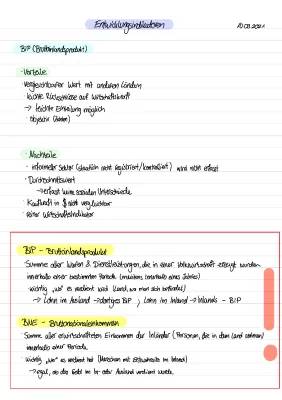 Entwicklungsindikatoren
BIP (Bruttoinlandsprodukt)
· Vorteile
· Vergleichbarer Wert mit anderen Ländern
· leichte Rückschlüsse auf Wirtschaftskraft
→ leichte Einteilung möglich
· objektiv
· Nachteile
· informeller Sektor (staatlich nicht registriert/kontrolliert) wird nicht erfasst
· Durchschnittswert
→ erfasst keine sozialen Unterschiede
· Kaufkraft in $ nicht vergleichbar
· reiner Wirtschaftsindikator
BIP - Bruttoinlandsprodukt
Summe aller Waren & Dienstleistungen, die in einer Volkswirtschaft erzeugt wurden
innerhalb einer bestimmten Periode (meistens innerhalb eines Jahres)
· wichtig „wo“ es verdient wird (Land, wo man sich befindet)
→ Lohn im Ausland → dortiges BIP ; Lohn im Inland → Inlands - BIP
BNE - Bruttonationaleinkommen
· Summe aller erwirtschafteten Einkommen der Inländer (Personen, die in dem Land wohnen)
innerhalb einer Periode
· wichtig „wer“ es verdient hat (Menschen mit im Inland)
→ egal, ob das Geld im In- oder Ausland verdient wurde